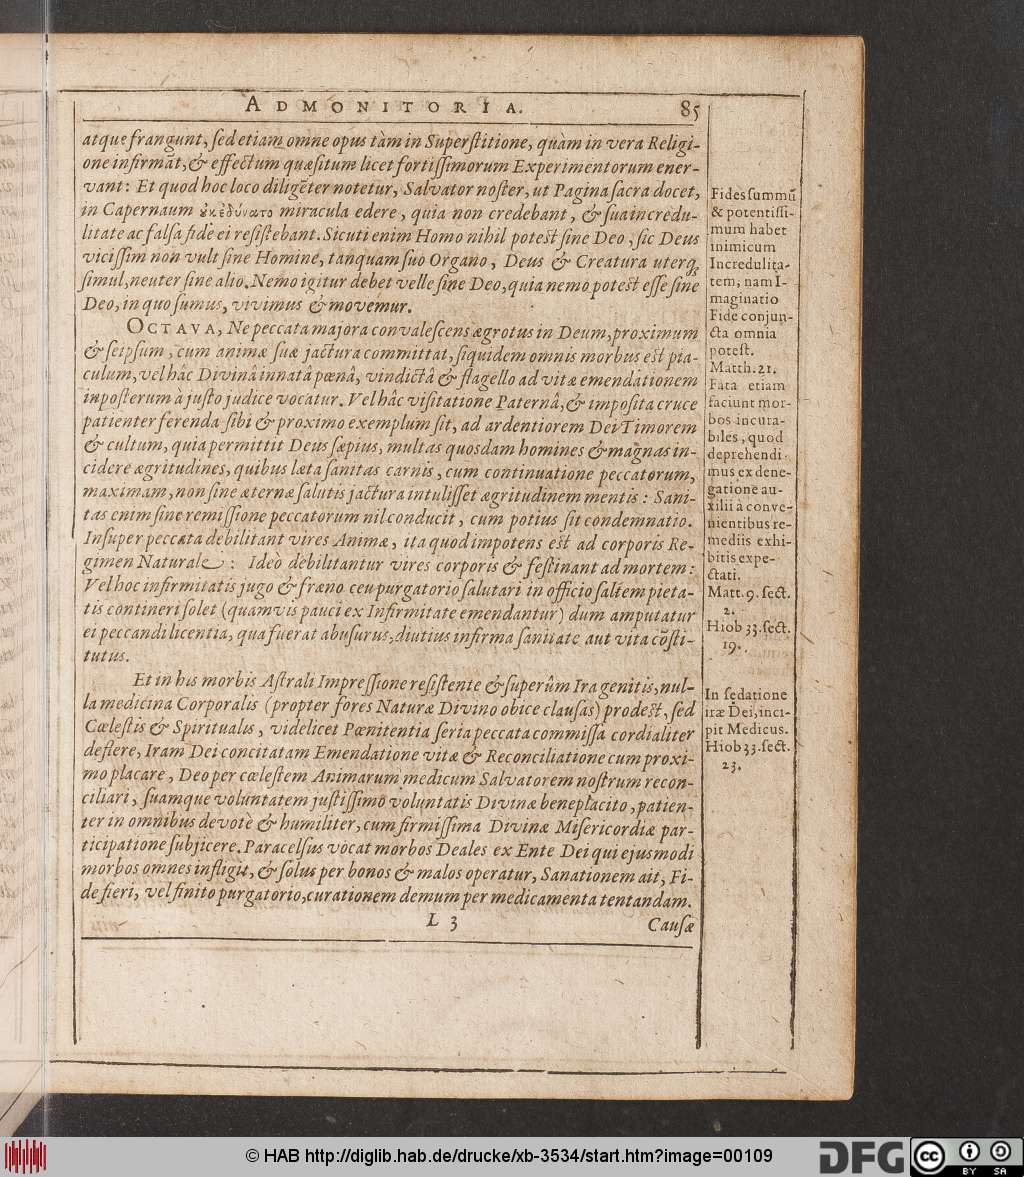 ADMONITORIA. 85
atque frangunt, sed etiam omne opus tàm in Superstitione, quàm in vera Religi-
one infirmāt, & effectum quæsitum licet fortissimorum Experimentorum ener-
vant: Et quod hoc loco diligēter notetur, Salvator noster, ut Pagina sacra docet,
in Capernaum ἐκ ἐδύνατο miracula edere, quia non credebant, & sua incredu-
litate ac falsa fide ei resistebant. Sicuti enim Homo nihil potest sine Deo, sic Deus
vicissim non vult sine Homine, tanquam suo Organo, Deus & Creatura uterq;
simul, neuter sine alio. Nemo igitur debet velle sine Deo, quia nemo potest esse sine
Deo, in quo sumus, vivimus & movemur.
OCTAVA, Ne peccata majora convalescens ægrotus in Deum, proximum
& seipsum, cum animæ suæ jactura committat, siquidem omnis morbus est pia-
culum, vel hâc Divinâ innatâ pœnâ, vindictâ & flagello ad vitæ emendationem
inposterum à justo judice vocatur. Vel hâc visitatione Paternâ, & imposita cruce
patienter ferenda sibi & proximo exemplum sit, ad ardentiorem Dei Timorem
& cultum, quia permittit Deus sæpius, multas quosdam homines & magnas in-
cidere ægritudines, quibus læta sanitas carnis, cum continuatione peccatorum,
maximam, non sine æternæ salutis jactura intulisset ægritudinem mentis: Sani-
tas enim sine remissione peccatorum nil conducit, cum potius sit condemnatio.
Insuper peccata debilitant vires Animæ, ita quod impotens est ad corporis Re-
gimen Naturale: Ideò debilitantur vires corporis & festinant ad mortem:
Vel hoc infirmitatis jugo & fræno ceu purgatorio salutari in officio saltem pieta-
tis contineri solet (quamvis pauci ex Infirmitate emendantur) dum amputatur
ei peccandi licentia, qua fuerat abusurus, diutius infirma sanitate aut vita cōsti-
tutus.
Et in his morbis Astrali Impressione resistente & superûm Ira genitis, nul-
la medicina Corporalis (propter fores Naturæ Divino obice clausas) prodest, sed
Cœlestis & Spiritualis, videlicet Pœnitentia seria peccata commissa cordialiter
deflere, Iram Dei concitatam Emendatione vitæ & Reconciliatione cum proxi-
mo placare, Deo per cœlestem Animarum medicum Salvatorem nostrum recon-
ciliari, suamque voluntatem justissimo voluntatis Divinæ beneplacito, patien-
ter in omnibus devotè & humiliter, cum firmissima Divinæ Misericordiæ par-
ticipatione subjicere. Paracelsus vocat morbos Deales ex Ente Dei qui ejusmodi
morbos omnes infligit, & solus per bonos & malos operatur, Sanationem ait, Fi-
de fieri, vel finito purgatorio, curationem demum per medicamenta tentandam.
L 3 Causæ
Fides summū
& potentissi-
mum habet
inimicum
Incredulita-
tem, nam I-
maginatio
Fide conjun-
cta omnia
potest.
Matth. 21.
Fata etiam
faciunt mor-
bos incura-
biles, quod
deprehendi-
mus ex dene-
gatione au-
xilii à conve-
nientibus re-
mediis exhi-
bitis expe-
ctati.
Matt. 9. sect.
2.
Hiob 33. sect.
19.
In sedatione
iræ Dei, inci-
pit Medicus.
Hiob 33. sect.
23.
© HAB http://diglib.hab.de/drucke/xb-3534/start.htm?image=00109
DFG
cc
BY SA